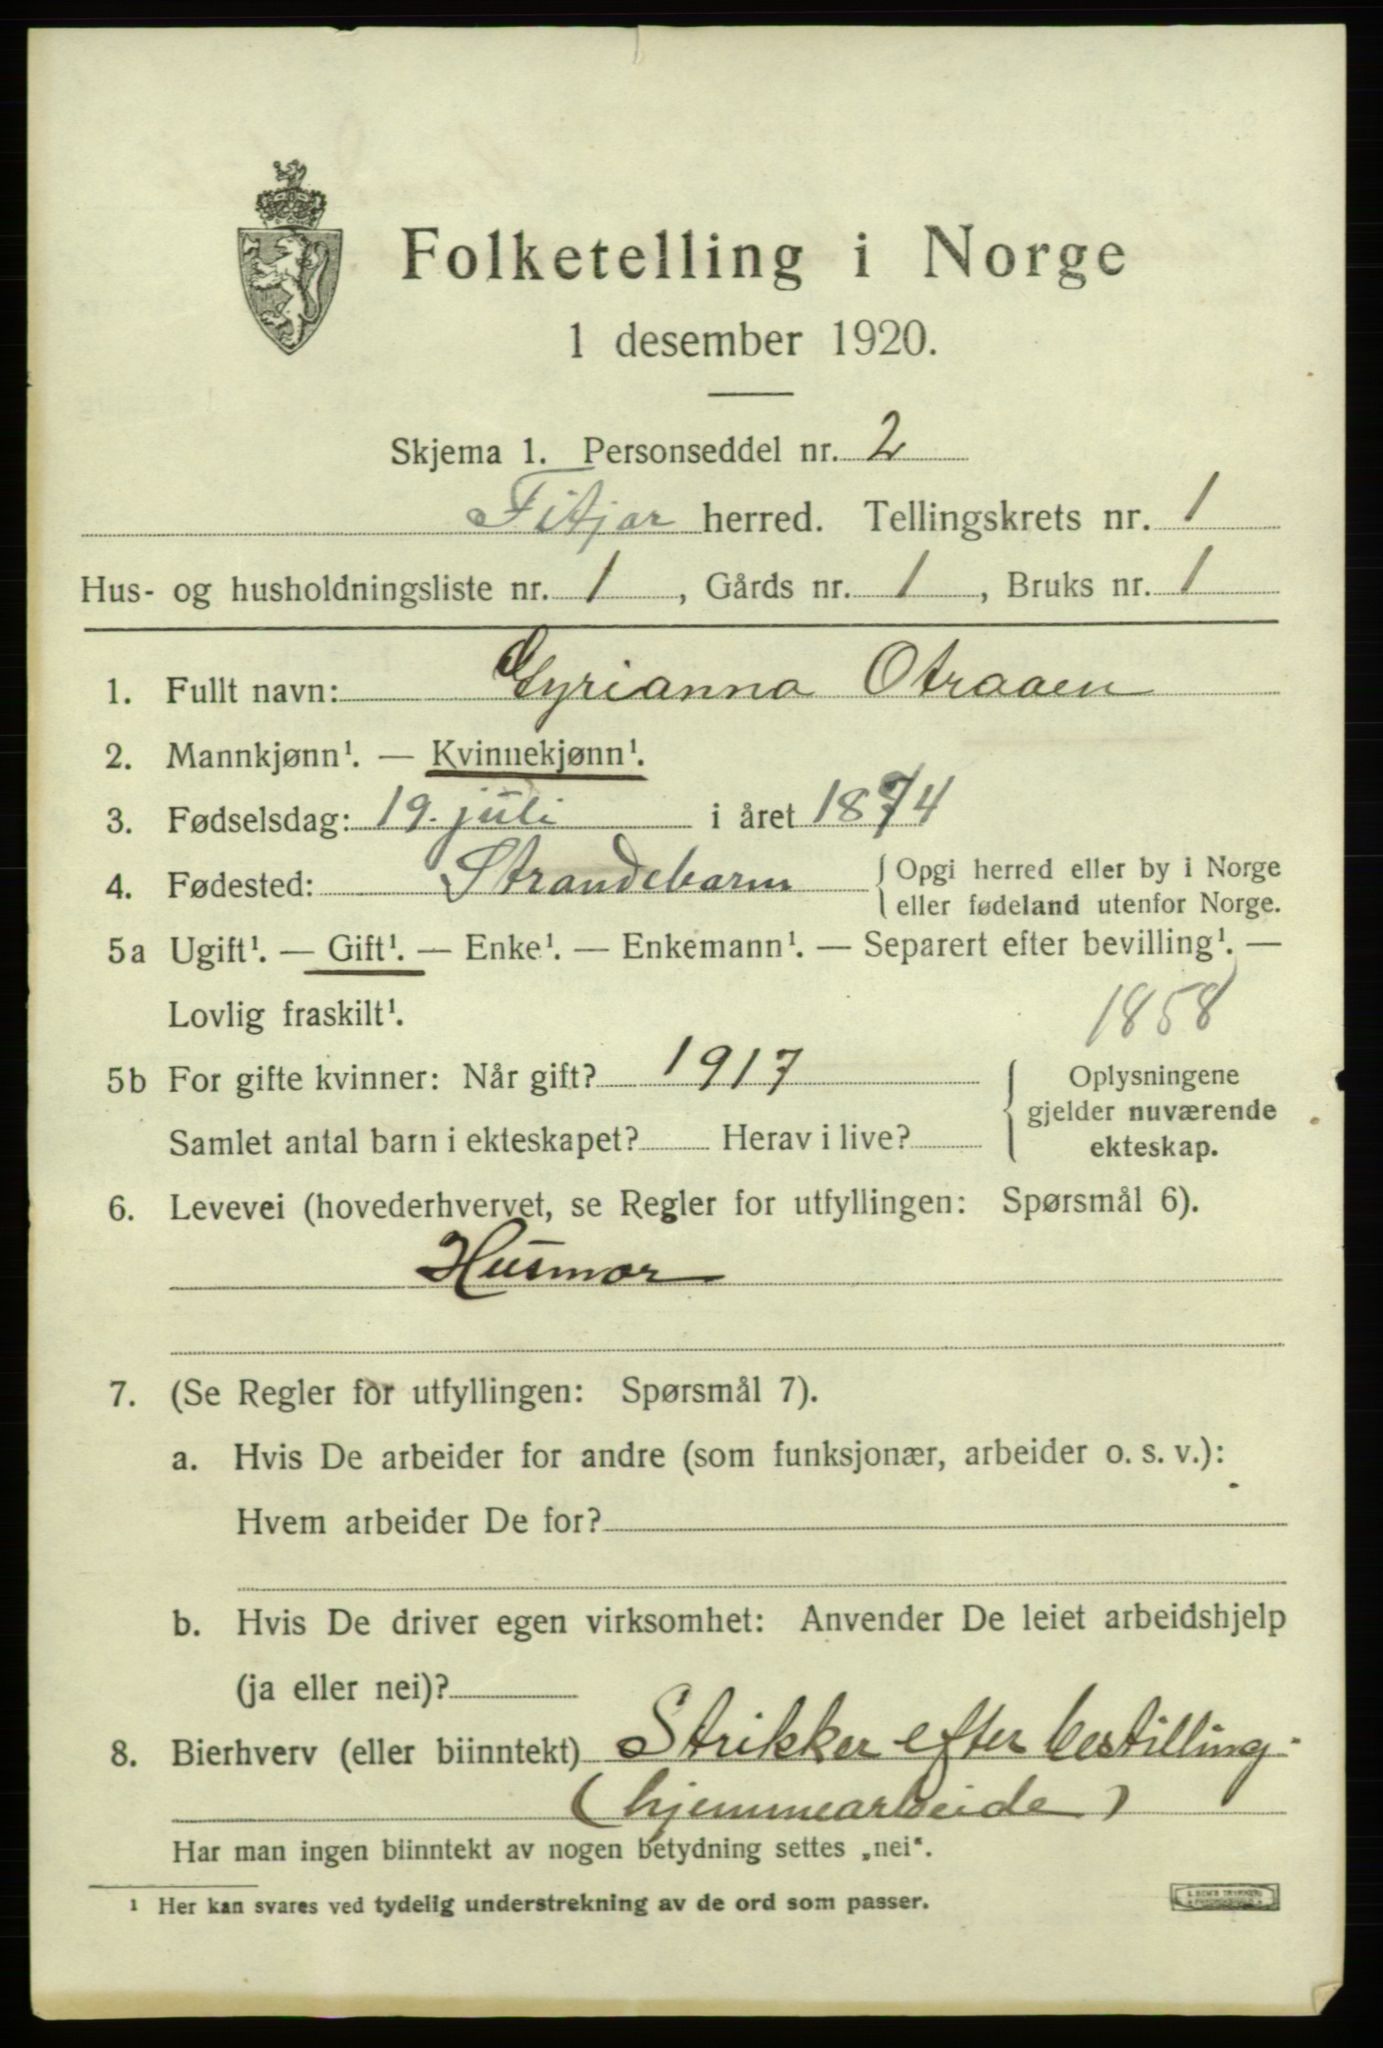 Folketelling i Norge
1 desember 1920.
Skjema 1. Personseddel nr. 2
Fitjar herred. Tellingskrets nr. 1
Hus- og husholdningsliste nr. 1, Gårds nr. 1, Bruks nr. 1
1. Fullt navn: Gyrianna Otraaen
2. Mannkjønn¹. — Kvinnekjønn¹.
3. Fødselsdag: 19. juli i året 1874
4. Fødested: Strandebarm {Opgi herred eller by i Norge
eller fødeland utenfor Norge.
5a Ugift¹. — Gift¹. — Enke¹. — Enkemann¹. — Separert efter bevilling¹. —
Lovlig fraskilt¹.
1858
5b For gifte kvinner: Når gift? 1917 { Oplysningene
gjelder nuværende
Samlet antal barn i ekteskapet? Herav i live?
ekteskap.
6. Levevei (hovederhvervet, se Regler for utfyllingen: Spørsmål 6).
Husmor
7. (Se Regler for utfyllingen: Spørsmål 7).
a. Hvis De arbeider for andre (som funksjonær, arbeider o. s. v.):
Hvem arbeider De for?
b. Hvis De driver egen virksomhet: Anvender De leiet arbeidshjelp
(ja eller nei)?
8. Bierhverv (eller biinntekt) Strikker efter bestilling.
(hjemmearbeide)
Har man ingen biinntekt av nogen betydning settes „nei“.
¹ Her kan svares ved tydelig understrekning av de ord som passer.